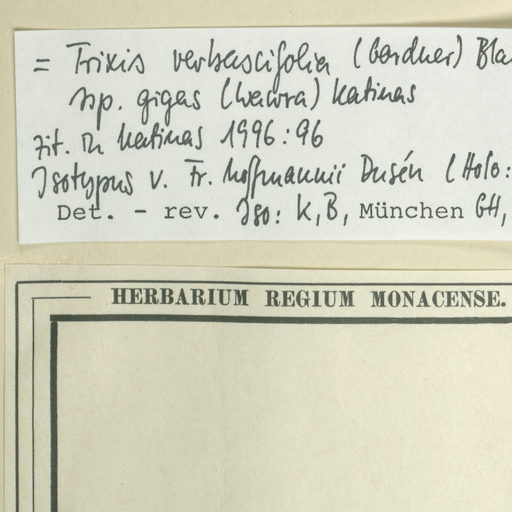 = Trixis verbascifolia (Gardner) Bla
ssp. gigas (Wawra) Katinas
zit. in Katinas 1996:96
Isotypus v. Tr. hoffmannii Dusén (Holo:
Det. - rev. Iso: K, B, München GH,
HERBARIUM REGIUM MONACENSE.